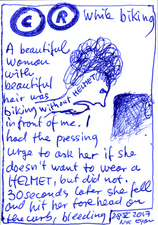 C R While biking
A beautiful
woman
with
beautiful
hair was
biking without HELMET,
in front of me. I
had the pressing
urge to ask her if she
doesn't want to wear a
HELMET, but did not.
30 seconds later she fell
and hit her forehead on
the curb, bleeding
2017